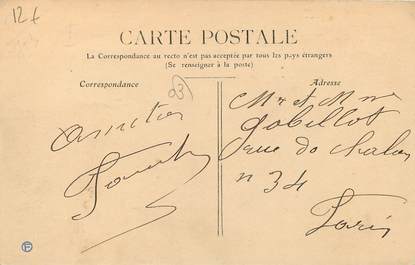 12 f
CARTE POSTALE
La Correspondance au recto n'est pas acceptée par tous les pays étrangers
(Se renseigner à la poste)
Correspondance
Adresse
03
Mr et Mme
Gobillot
rue de Chalon
n 34
Paris
Amitiés